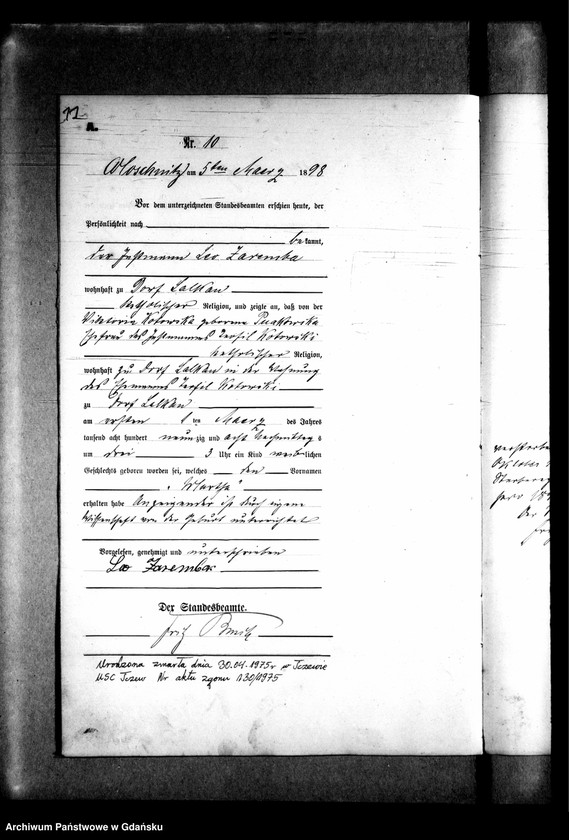 11
A.
Nr. 10
am 5ten Maerz 1898
Vor dem unterzeichneten Standesbeamten erschien heute, der
Persönlichkeit nach
bekannt,
der Instmann Leo Zaremba
wohnhaft zu Dorf Lalkau
katholischer Religion, und zeigte an, daß von der
Viktoria Kotowska geborene
Ehefrau des Instmannes Teofil Kotowski
katholischer Religion,
wohnhaft zu Dorf Lalkau in der Wohnung
des Ehemannes Teofil Kotowski
zu Dorf Lalkau
am ersten 1 ten Maerz des Jahres
tausend acht hundert neunzig und acht Nachmittags
um drei 3 Uhr ein Kind weiblichen
Geschlechts geboren worden sei, welches den Vornamen
"Martha"
erhalten habe Anzeigender ist durch eigene
Wissenschaft von der Geburt unterrichtet
Vorgelesen, genehmigt und unterschrieben
Leo Zaremba
Der Standesbeamte.
Fritz
Urodzona zmarła dnia 30.04.1975r w Tczewie
USC Tczew Nr aktu zgonu 130/1975
verstorben
Oktober
Sterbereg
Der
Archiwum Państwowe w Gdańsku